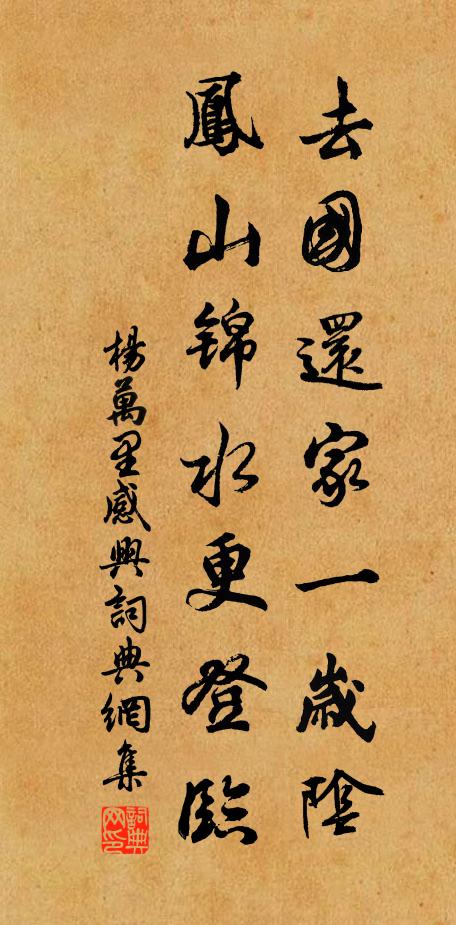 去國還家一歲陰
鳳山錦水更登臨
楊萬里感興詞典網集
詞典网印